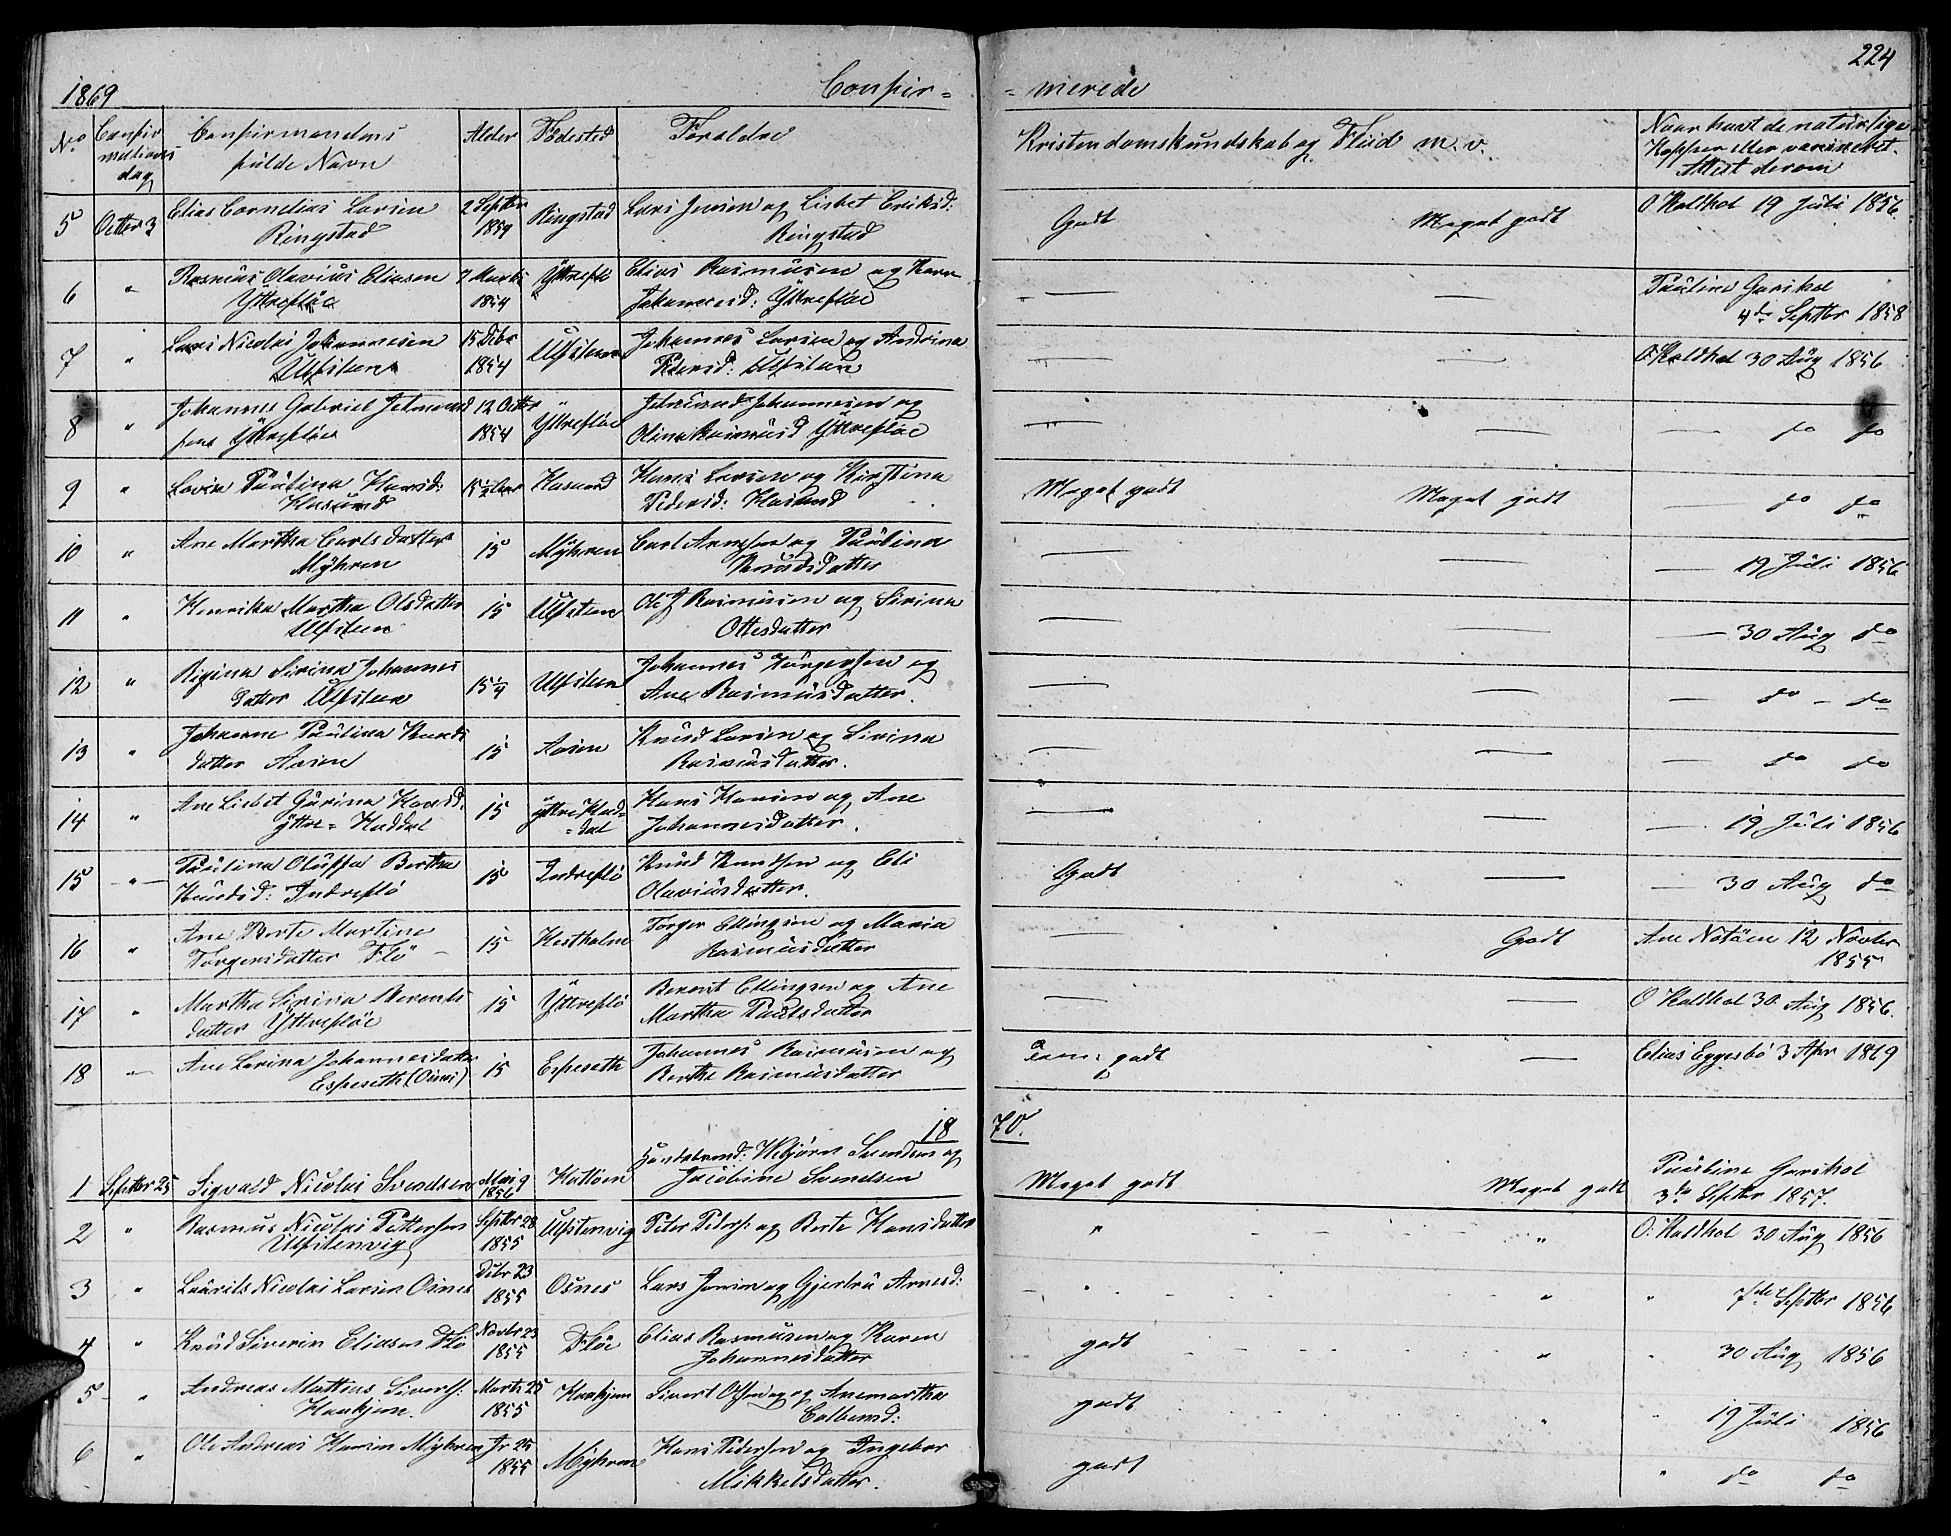 224
1869 Confir= =merede
No Confirmations dag Confirmandens fulde Navn Alder Fødested Forældre Kristendomskundskab og Flid m. v. Naar havt de naturlige Kopper eller vaccineret. Attest derom
5 Octbr 3 Elias Cornelius Larsen Ringstad 2 Septbr 1854 Ringstad Lars Jensen og Lisbet Eriksd: Ringstad Godt Meget godt O Kaldhol 19 Juli 1856
6 " Rasmus Olavius Eliasen Yttrefløe 7 Marts 1854 Yttreflø Elias Rasmusen og Karen Johannesd: Yttrefløe — — Pauline Garshol 4de Septbr 1858
7 " Lars Nicolai Johannesen Ulfsteen 15 Debr 1854 Ulfsteen Johannes Larsen og Andrina Pedersd: Ulfsteen — — O Kaldhol 30 Aug 1856
8 " Johannes Gabriel Jetmundsen Yttrefløe 12 Octbr 1854 Yttrefløe Jetmund Johannesen og Oline Rasmusd Yttrefløe — — — do do
9 " Lovise Paulina Hansd: Hasund 15½ Aar Hasund Hans Larsen og Kirstina Pedersd: Hasund Meget godt Meget godt — do do
10 " Ane Martha Carlsdatter Mÿhren 15 Mÿhren Carl Arnesen og Paulina Knudsdatter — — — 19 Juli 1856
11 " Henrika Martha Olsdatter Ulfsteen 15 Ulfsteen Ole J Rasmusen og Sirina Ottesdatter — — — 30 Aug do
12 " Regina Sirina Johannesdatter Ulfsteen 15¼ Ulfsteen Johannes Jørgensen og Ane Rasmusdatter. — — — do – do
13 " Johanne Paulina Knudsdatter Aasen 15 Aasen Knud Larsen og Sirina Rasmusdatter. — — — do do
14 " Ane Lisbet Gurina Hansd. Yttre=Haddal 15 Yttre Had=dal Hans Hansen og Ane Johannesdatter. — — — 19 Juli 1856
15 " Paulina Oluffa Berthe Knudsd: Indreflø 15 Indreflø Knud Knudsen og Eli Olaviusdatter. Godt — — 30 Aug do
16 " Ane Berte Martine Torgersdatter Flö 15 Hestholm Torger Ellingsen og Maria Rasmusdatter — Godt Ane Notöen 12 Novbr 1855
17 " Martha Sirina Berentsdatter Yttrefløe 15 Yttreflø Berent Ellingsen og Ane Martha Paulsdatter — — O Kaldhol 30 Aug 1856.
18 " Ane Lovina Johannesdatter Espeseth (Osnes) 15 Espeseth Johannes Rasmusen og Berthe Rasmusdatter Tem: godt — Elias Eggesbø 3 Apr 1869
1870.
1 Septbr 25 Sigvald Nicolai Svendsen Mai 9 1856 Hatløen Handelsmd: Vebjørn Svendsen og Jacobine Svendsen Meget godt Meget godt Pauline Garshol 3de Septbr 1857.
2 " Rasmus Nicolai Pettersen Ulfstenvig Septbr 28 1855 Ulfstenvig Peter Peders: og Berte Hansdatter " " O: Kaldhol 30 Aug 1856
3 " Laurits Nicolai Larsen Osnes Debr 23 1855 Osnes Lars Jensen og Gjertru Arnesd: " " " 7de Septbr 1856
4 " Knud Severin Eliasen Flö Novbr 23 1855 Fløe Elias Rasmusen og Karen Johannesdatter godt " " 30 Aug 1856
5 " Andreas Mattias Siverts: Haukjem. Marts 25 1855 Haukjem Sivert Olsen og Anemartha godt " " 19 Juli 1856
6 " Ole Andreas Hansen Mÿhren Jr 25 1855 Mÿhren Hans Pedersen og Ingebor Mikkelsdatter. godt " do do